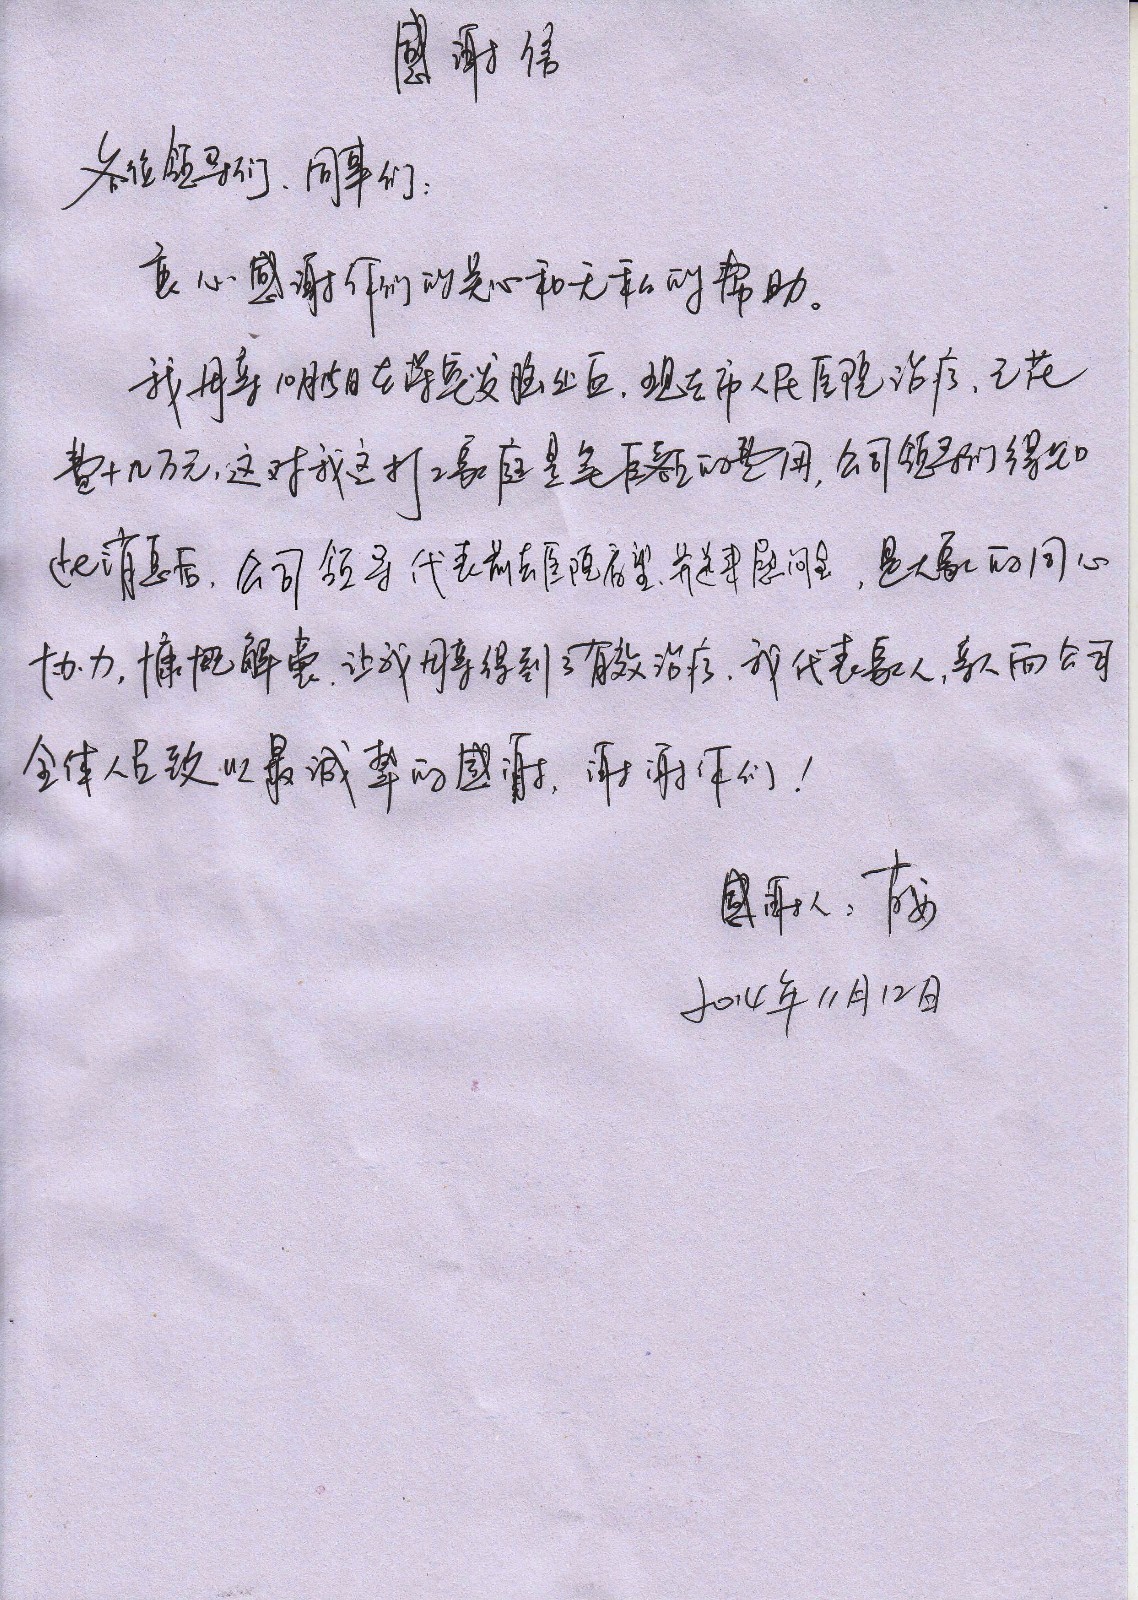 感谢信
各位领导们、同事们:
衷心感谢你们的关心和无私的帮助。
我母亲10月15日在突发脑出血,现在市人民医院治疗,已花
费十几万元,这对我这打工家庭是笔巨额的费用,公司领导们得知
此消息后,公司领导代表前去医院看望、并送来慰问金,是大家的同心
协力,慷慨解囊,让我母亲得到了有效治疗,我代表家人,亲人向公司
全体人员致以最诚挚的感谢,谢谢你们!
感谢人:
2014年11月12日